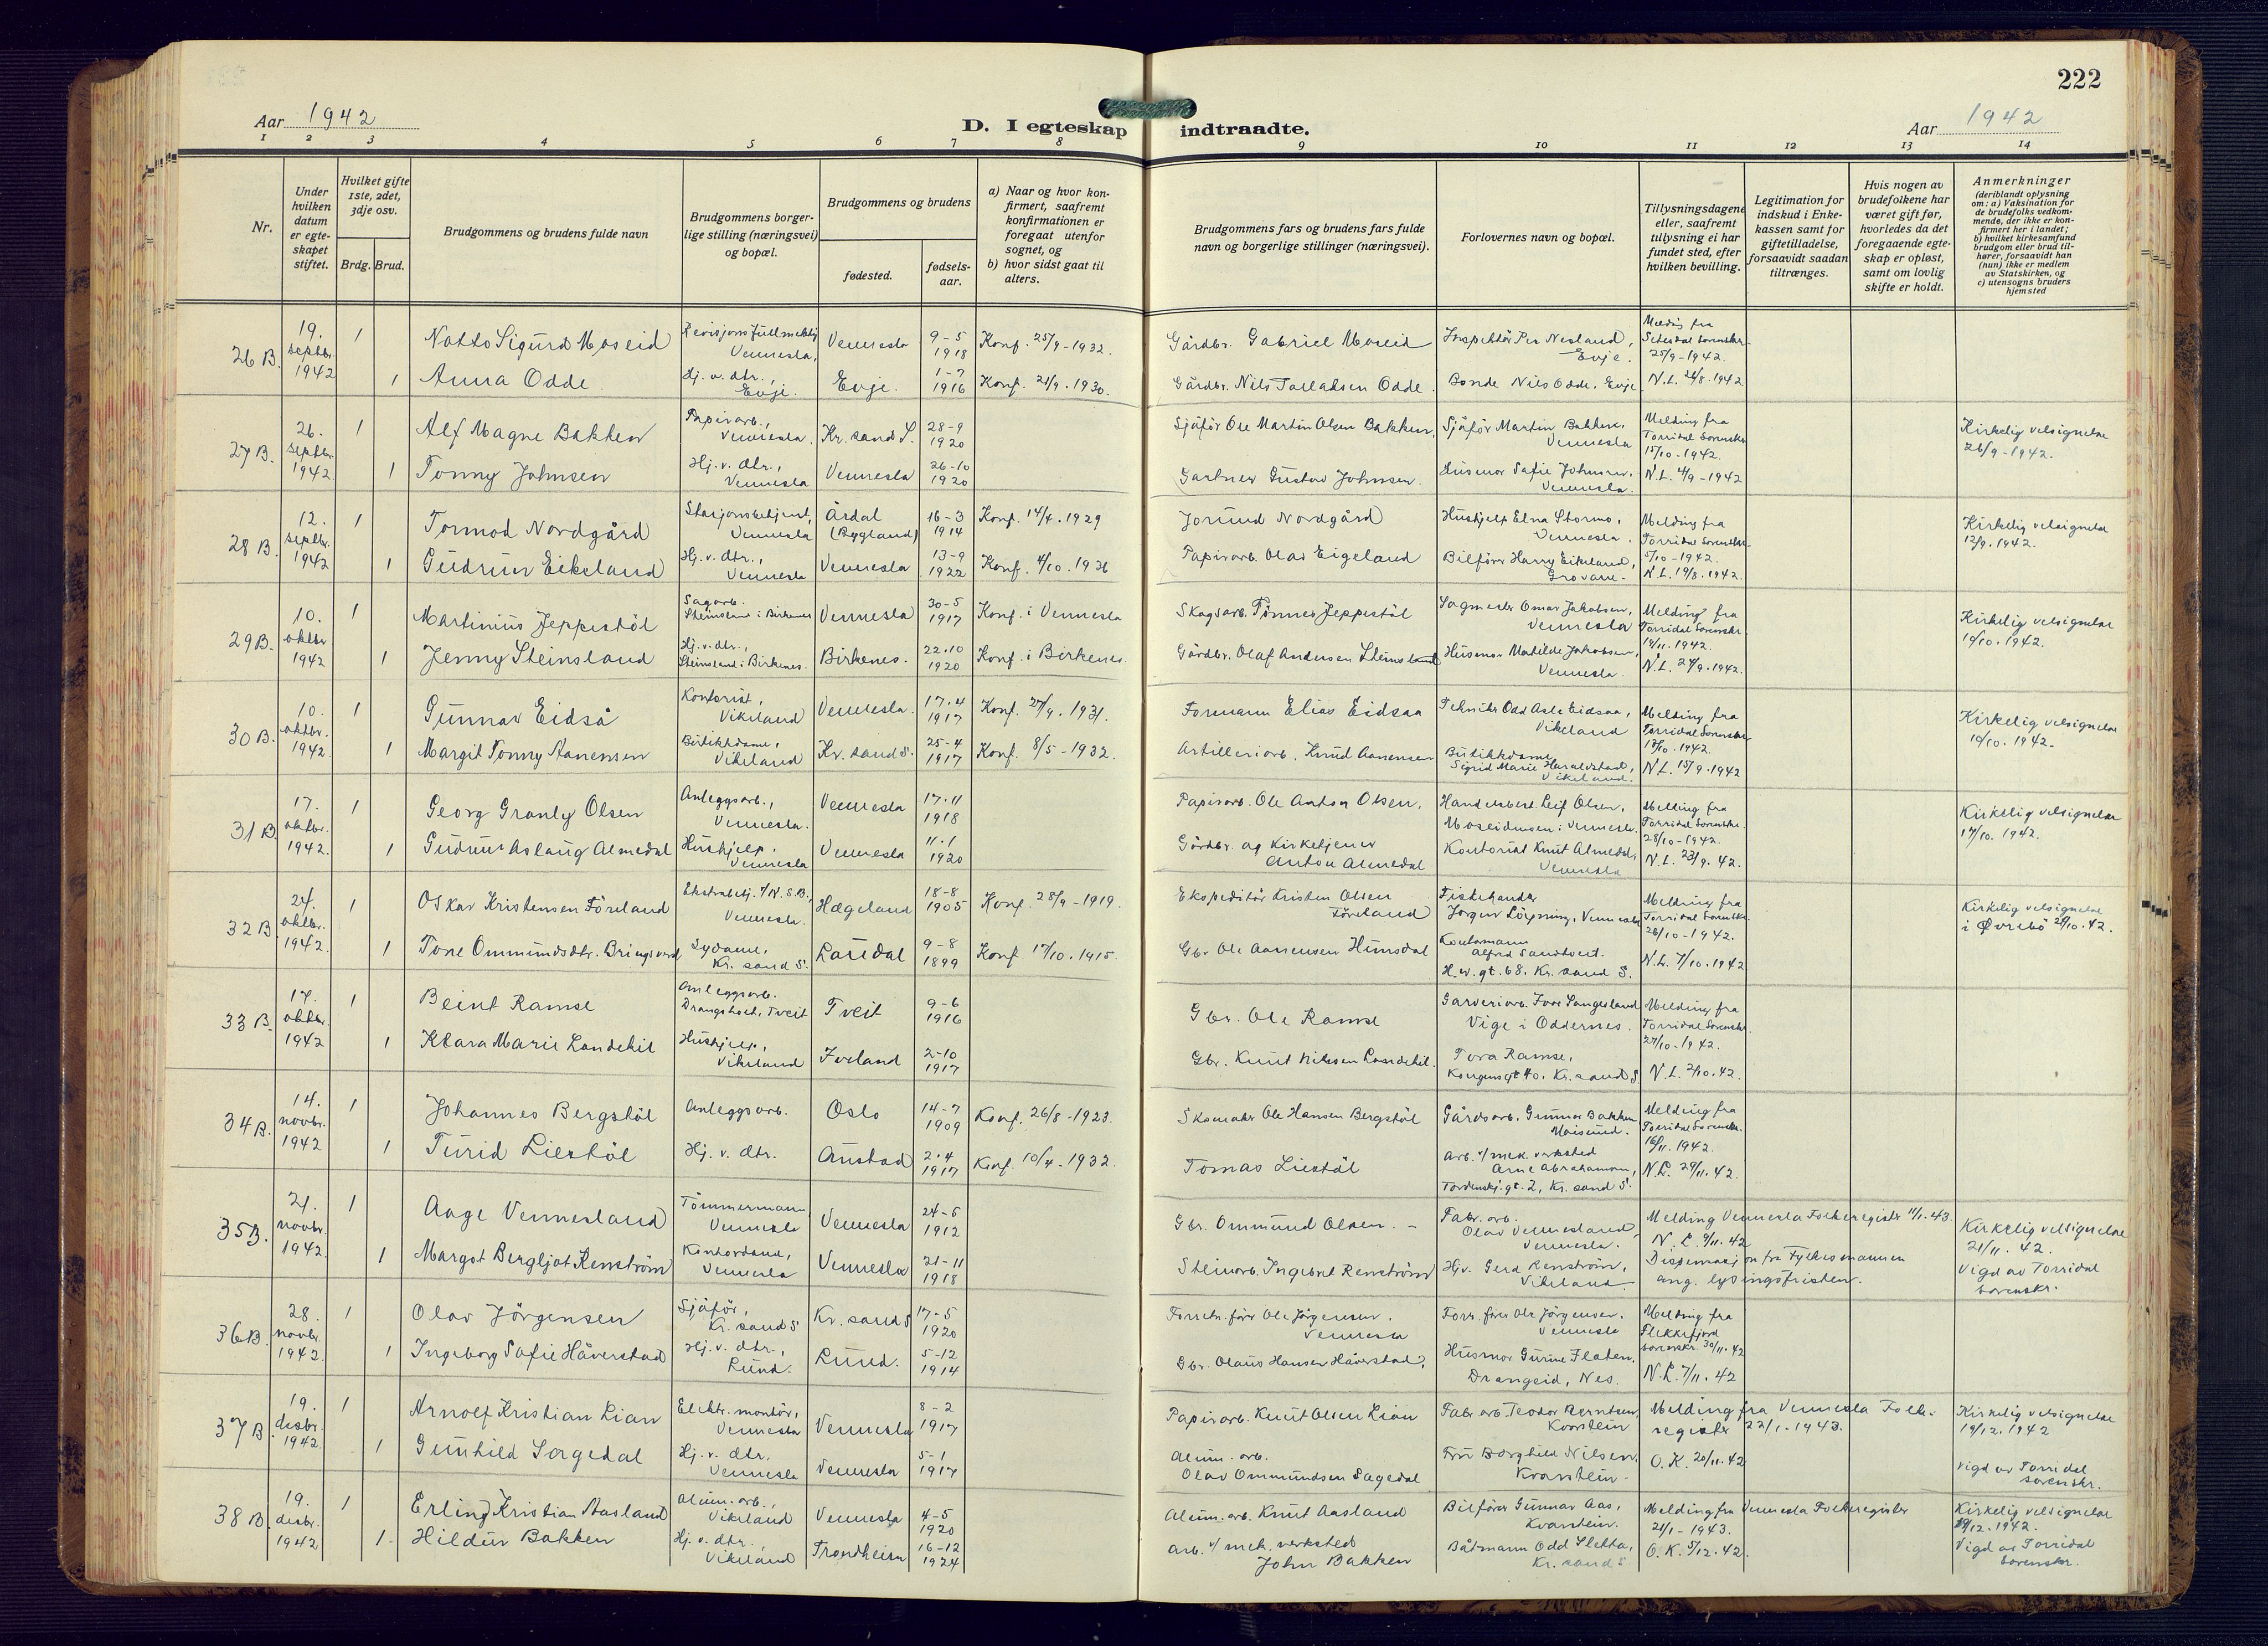 222
Aar 1942
D. I egteskap indtraadte.
Aar 1942
1 2 3 4 5 6 7 8 9 10 11 12 13 14
Nr.
Under hvilken datum er egteskapet stiftet.
Hvilket gifte 1ste, 2det, 3dje osv.
Brdg. Brud.
Brudgommens og brudens fulde navn
Brudgommens borgerlige stilling (næringsvei) og bopæl.
Brudgommens og brudens
fødested.
fødsels-aar.
a) Naar og hvor konfirmert, saafremt konfirmationen er foregaat utenfor sognet, og
b) hvor sidst gaat til alters.
Brudgommens fars og brudens fars fulde navn og borgerlige stillinger (næringsvei).
Forlovernes navn og bopæl.
Tillysningsdagene eller, saafremt tillysning ei har fundet sted, efter hvilken bevilling.
Legitimation for indskud i Enkekassen samt for giftetilladelse, forsaavidt saadan tiltrænges.
Hvis nogen av brudefolkene har været gift før, hvorledes da det foregaaende egteskap er opløst, samt om lovlig skifte er holdt.
Anmerkninger
(deriblandt oplysning om: a) Vaksination for de brudefolks vedkommende, der ikke er konfirmert her i landet; b) hvilket kirkesamfund brudgom eller brud tilhører, forsaavidt han (hun) ikke er medlem av Statskirken, og c) utensogns bruders hjemsted
26 B. 19. septbr. 1942
1 Natto Sigurd Moseid Revisjonsfullmektig Vennesla, Vennesla 9-5 1918 Konf. 25/9-1932. Gårdbr. Gabriel Moseid Inspektör Per Nesland, Evje. Melding fra Setesdal Sorenskr. 25/9-1942.
1 Anna Odde. Hj. v. dtr., Evje. Evje. 1-7 1916 Konf. 21/9. 1930. Gårdbr. Nils Tallaksen Odde. Bonde Nils Odde, Evje N.L. 24/8.1942
27 B. 26. septbr. 1942
1 Alf Magne Bakken Papirarb., Vennesla. Kr. sand S. 28-9 1920 Sjåför Ole Martin Olsen Bakken, Sjåför Martin Bakken, Vennesla Melding fra Torridal Sorenskr. 15/10-1942. Kirkelig velsignelse 26/9-1942.
1 Tonny Johnsen Hj. v. dtr., Vennesla Vennesla 26-10 1920 Gartner Gustav Johnsen. Husmor Sofie Johnsen, Vennesla. N.L. 4/9-1942
28 B. 12. septbr. 1942
1 Tormod Nordgård Stasjonsbetjent, Vennesla Årdal (Bygland) 16-3 1914 Konf. 14/4.1929 Jorund Nordgård Hushjelp Elna Stormo, Vennesla. Melding fra Torridal Sorenskr. 5/10-1942. Kirkelig velsignelse 12/9.1942.
1 Gudrun Eikeland Hj. v. dtr., Vennesla Vennesla 13-9 1922 Konf. 4/10.1936 Papirarb. Olav Eigeland Bilförer Harry Eikeland, Grovane. N.L. 19/8.1942.
29 B. 10. oktbr 1942
1 Martinius Jeppestöl Sagarb. Steinsland i Birkenes Vennesla 30-5 1917 Konf. i Vennesla Skogsarb. Tönnes Jeppestöl Sagmester Omar Jakobsen, Vennesla Melding fra Torridal Sorenskr. 19/11.1942. Kirkelig velsignelse 10/10.1942.
1 Jenny Steinsland Hj. v. dtr., Steinsland i Birkenes. Birkenes. 22.10 1920 Konf. i Birkenes. Gårdbr. Olaf Andersen Steinsland Husmor Mathilde Jakobsen, Vennesla. N.L. 24/9.1942.
30 B. 10. oktbr. 1942
1 Gunnar Eidså Kontorist, Vikeland Vennesla. 17.4 1917 Konf. 27/9.1931. Formann Elias Eidsaa Tekniker Odd Asle Eidsaa, Vikeland Melding fra Torridal Sorenskr. 13/10.1942. Kirkelig velsignelse 10/10.1942.
1 Margit Tonny Aanensen Butikkdame, Vikeland Kr. sand S. 25-4 1917 Konf. 8/5-1932. Artilleriarb. Knud Aanensen Butikkdame Sigrid Marie Haraldstad, Vikeland. N.L. 15/9.1942
31 B. 17. oktbr. 1942.
1 Georg Granly Olsen Anleggsarb., Vennesla. Vennesla 17.11 1918 Papirarb. Ole Anton Olsen. Handelsbest. Leif Olsen, Moseidmoen i Vennesla. Melding fra Torridal Sorenskr. 28/10-1942. Kirkelig velsignelse 17/10.1942.
1 Gudrun Aslaug Almedal Hushjelp, Vennesla Vennesla 11.1 1920 Gårdbr. og Kirketjener Anton Almedal Kontorist Knut Almedal, Vennesla N.L. 23/9.42.
32 B. 24. oktbr. 1942.
1 Oskar Kristensen Föreland Ekstrabetj. v/N.S.B., Vennesla. Hægeland 18-8 1905 Konf. 28/9-1919. Ekspeditör Kristen Olsen Föreland Fiskehandler Jörgen Löyning, Vennesla Melding fra Torridal Sorenskr. 26/10-1942. Kirkelig velsignelse i Øvrebö 24/10.42.
1 Tone Ommundsdtr. Bringsverd Sydame, Kr. sand S. Laudal 9-8 1899 Konf. 17/10.1915. Gbr. Ole Aanensen Hunsdal Kontormann Alfred Sandtveit. H.W.gt. 68. Kr. sand S. N.L. 7/10.1942
33 B. 17. oktbr. 1942
1 Beint Ramse Anleggsarb. Drangsholt, Tveit Tveit 9-6 1916 Gbr. Ole Ramse Garveriarb. Tore Langeland Vige i Oddernes. Melding fra Torridal Sorenskr. 27/10-1942.
1 Klara Marie Landekil Hushjelp, Vikeland Iveland 2-10 1917 Gbr. Knut Nilssen Landekil. Tora Ramse, Kongensgt 40. Kr. sand S. N.L. 2/10.42.
34 B. 14. novbr. 1942
1 Johannes Bergstöl Anleggsarb. Oslo 14-7 1909 Konf. 26/8-1923. Skomaker Ole Hansen Bergstöl Gårdsarb. Gunnar Bakken Moisund. Melding fra Torridal Sorenskr. 16/11.1942.
1 Turid Liestöl Hj. v. dtr. Austad 2.4 1917 Konf. 10/4-1932. Tomas Liestöl Arb. v/mek. verksted Arne Abrahamsen, Tordenskj.gt. 2, Kr. sand S. N.L. 29/11.42.
35 B. 21. novbr. 1942.
1 Aage Vennesland Tömmermann Vennesla Vennesla 24-6 1912 Gbr. Ommund Olsen. Fabr. arb. Olav Vennesland Vennesla. Melding Vennesla Folkeregister 11/1.43. N.L. 9/11.42 Kirkelig velsignelse 21/11.42.
1 Margot Bergljot Renström Kontordame, Vennesla Vennesla 21-11 1918 Steinarb. Ingebret Renström Hj.v. Gerd Renström, Vikeland Dispensasjon fra Fylkesmannen ang. lysingsfristen. Vigd av Torridal sorenskr.
36 B. 28. novbr. 1942.
1 Olav Jörgensen Sjåför, Kr. sand S Kr. sand S 17-5 1920 Forretn.förer Ole Jörgensen. Vennesla Forr.förer Ole Jörgensen. Vennesla Melding fra Flekkefjord sorenskr. 30/11.42
1 Ingeborg Sofie Håverstad Hj. v. dtr., Lund. Lund. 5-12 1914 Gbr. Olaus Hansen Håverstad, Husmor Gurine Flaten. Drangeid, Nes. N.L. 7/11.42
37 B 19. desbr. 1942.
1 Arnolf Kristian Lian Elektr. montör, Vennesla Vennesla 8-2 1917 Papirarb. Knut Olsen Lian Fabr.arb. Teodor Berntsen, Kvarstein Melding fra Vennesla Folkeregister 22/1.1943. Kirkelig velsignelse 19/12.1942
1 Gunhild Sagedal Hj. v. dtr. Vennesla Vennesla 5-1 1917 Alum. arb. Olav Ommundsen Sagedal Fru Borghild Nilsen, Kvarstein. O.K. 20/11.42 Vigd av Torridal sorenskr.
38 B. 19. desbr. 1942
1 Erling Kristian Aasland Alum. arb., Vikeland Vennesla 4-5 1920 Alum. arb. Knut Aasland Bilförer Gunnar Aas, Kvarstein. Melding fra Vennesla Folkeregister 21/1-1943. Kirkelig velsignelse 19/12.1942.
1. Hildur Bakken Hj. v. dtr., Vikeland Trondheim 16-12 1924 Arb. v/mek. verksted John Bakken Båtmann Odd Sletta, Kr. sand S. O.K. 5/12.42. Vigd av Torridal sorenskr.